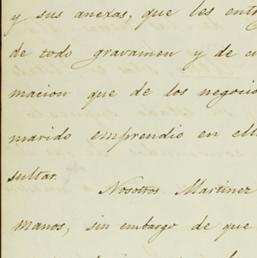 y sus anexas, que les ent
de todo gravamen y de c
macion que de los negocio
marido emprendio en ell
sultar.
Nosotros Martinez
manos, sin embargo de que